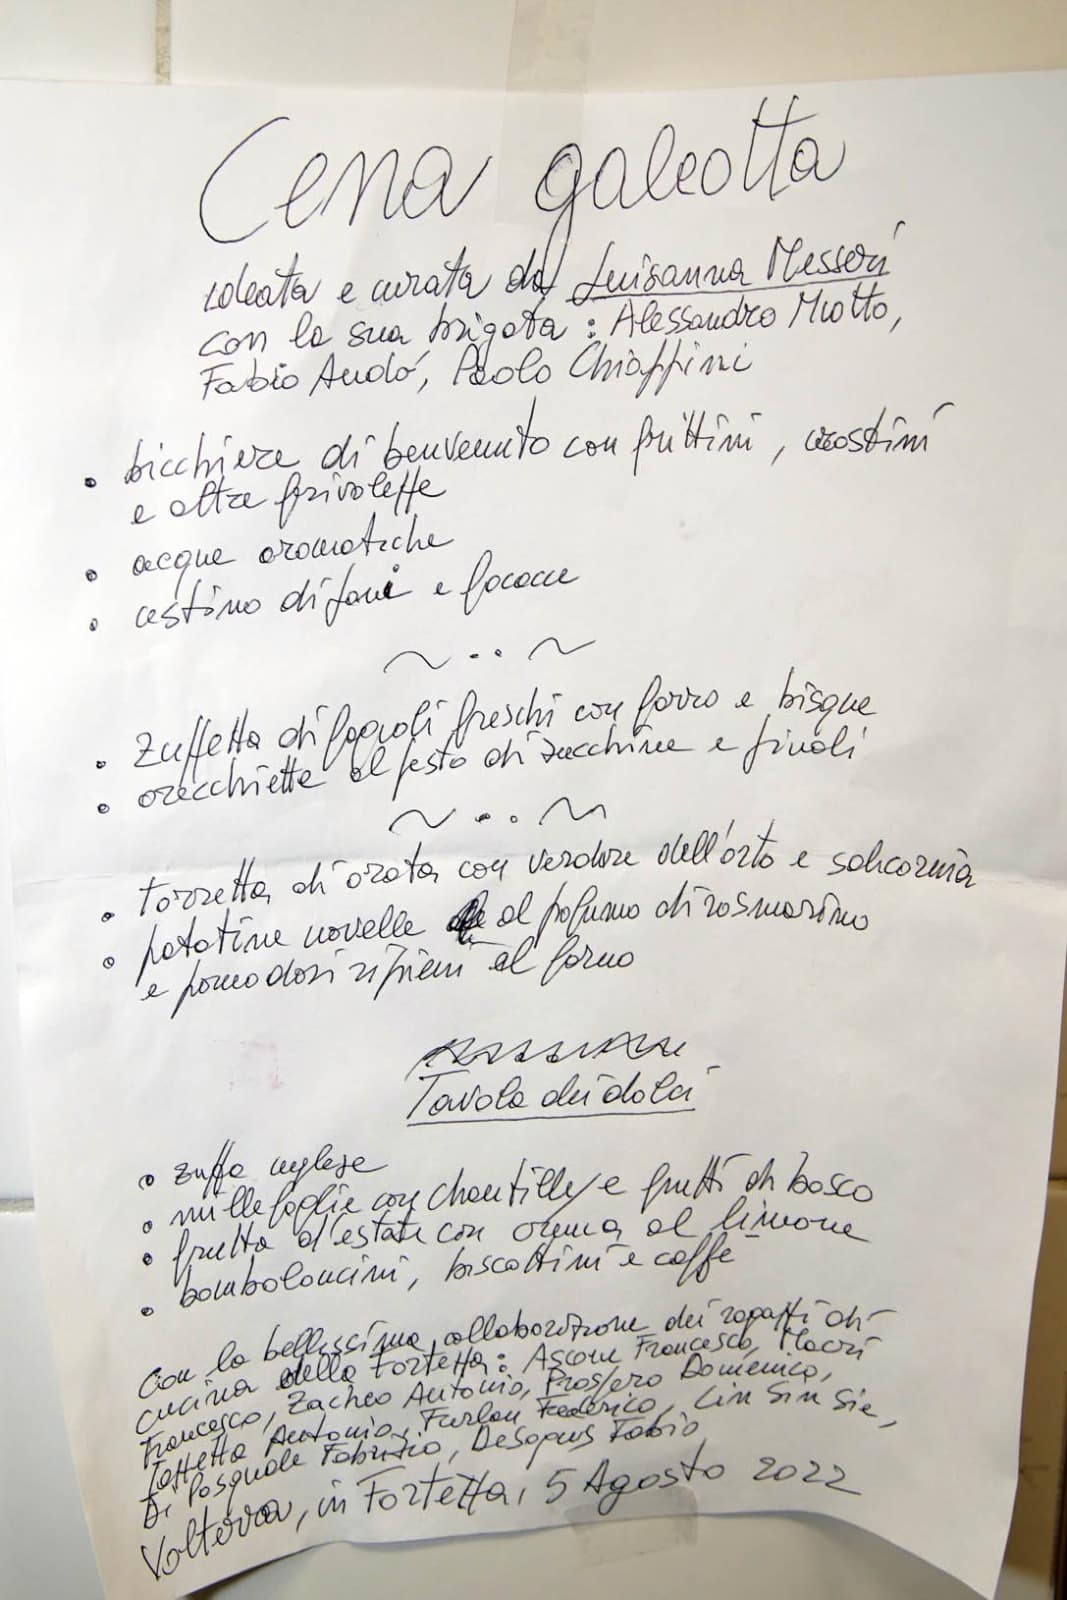 Cena galeotta
ideata e curata da Luisanna Messeri
con la sua brigata: Alessandro Miotto,
Fabio Andó, Paolo Chiappini
• bicchiere di benvenuto con frittini, crostini
e altre frivolezze
• acque aromatiche
• cestino di pani e focacce
~ .. ~
• zuppetta di fagioli freschi con farro e bisque
• orecchiette al pesto di zucchine e pinoli
~ .. ~
• torretta di orata con verdure dell'orto e salicornia
• patatine novelle al profumo di rosmarino
e pomodori ripieni al forno
Tavola dei dolci
• zuppa inglese
• millefoglie con chantilly e frutti di bosco
• frutta d'estate con crema al limone
• bomboloncini, biscottini e caffè
Con la bellissima collaborazione dei ragazzi di
cucina della Fortezza: Ascone Francesco, Macrì
Francesco, Zacheo Antonio, Prospero Domenico,
Antonio, Furlan Federico, Lin Sin Sie,
Di Pasquale Fabrizio, Desogus Fabio
Volterra, in Fortezza, 5 Agosto 2022